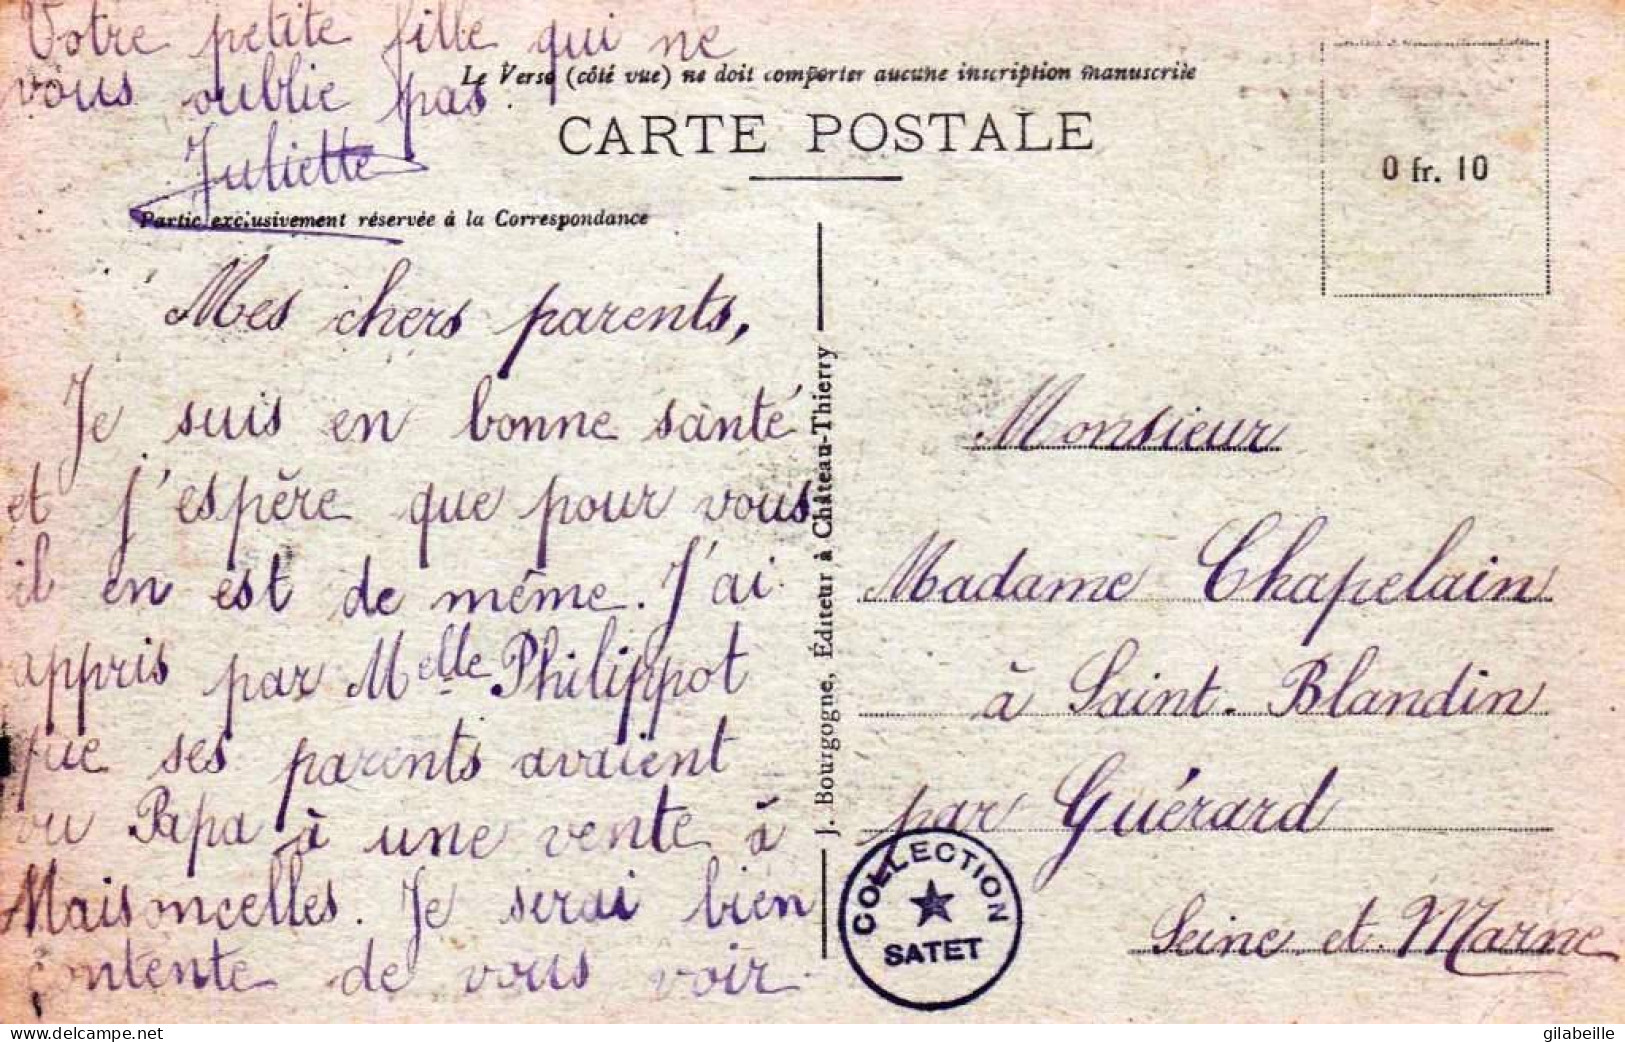 Votre petite fille qui ne
vous oublie pas.
Juliette
Le Verso (côté vue) ne doit comporter aucune inscription manuscrite
CARTE POSTALE
0 fr. 10
Partie exclusivement réservée à la Correspondance
Mes chers parents,
Je suis en bonne santé
et j'espère que pour vous
il en est de même. J'ai
appris par Melle Philippot
que ses parents avaient
vu Papa à une vente à
Maisoncelles. Je serai bien
contente de vous voir.
J. Bourgogne, Éditeur à Château-Thierry
Monsieur
Madame Chapelain
à Saint-Blandin
par Guérard
Seine et Marne
COLLECTION
SATET
www.delcampe.net
gilabeille